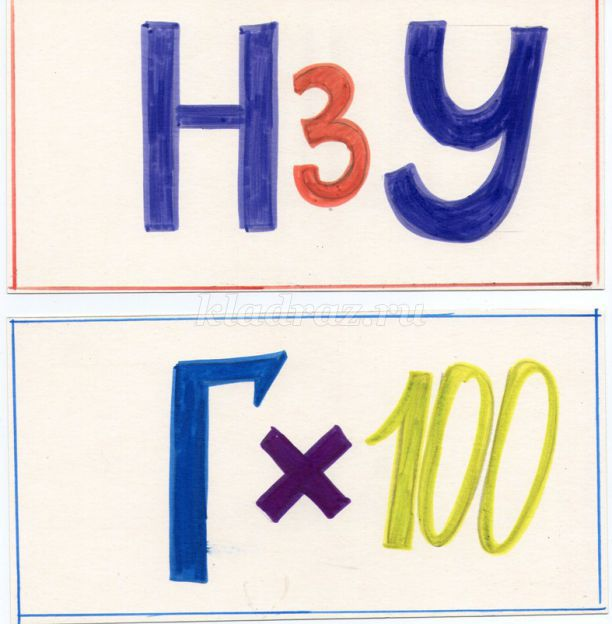 Н З У
kladraz.ru
Г × 100